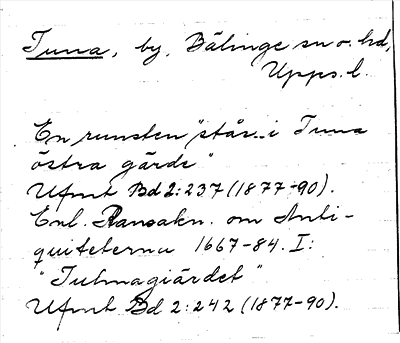 Tuna, by, Bälinge sn o. hd,
Upps. l.
En runsten "står.. i Tuna
östra gärde"
Ufmt Bd 2:237 (1877-90).
Enl. Ransakn. om Anti-
quiteterna 1667-84. I:
"Tulmagiärdet"
Ufmt Bd 2:242 (1877-90).